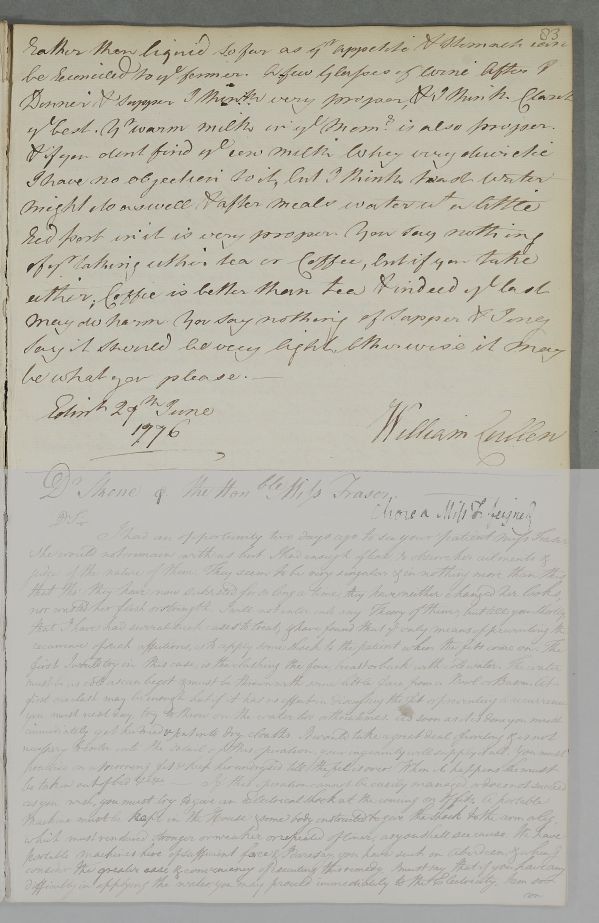 83
Rather than liquid so far as yr appetite & stomach can
be reconciled to ye former. A few Glasses of wine after
Dinner & Supper I think very proper, & I think Claret
ye best. Ye warm milk in ye Morng is also proper.
& if you dont find ye new milk whey very diuretic
I have no objection to it, but I think toast water
might do as well & after meals water wt a little
Red port in it is very proper. You say nothing
of yr taking either tea or Coffee, but if you take
either, Coffee is better than tea & indeed ye last
may do harm. You say nothing of Supper & I only
say it should be very light, otherwise it may
be what you please.—
Edinh 29th June
1776
William Cullen
Dr Skene for the Honble Miss Fraser
Chorea Miss F
Dr Sr
I had an opportunity two days ago to see your patient Miss Fraser
She would not remain with us but I had enough of time to observe her ailments &
judge of the nature of them. They seem to be very singular & in nothing more than this
that tho' they have now subsisted for so long a time, they have neither changed her looks,
nor wasted her flesh or strength. I will not enter into any Theory of them, but tell you shortly
that I have had several such cases to treat, & have found that ye only means of preventing the
recurrence of such affections, is to apply some shock to the patient when the fits come on. The
first I would try in this case, is the dashing the face, breast & back with cold water. The water
must be as cold as can be got & must be thrown with some little force from a Bowl or Bason. At
first once last may be enough but if it has no effect in dissipating the fit or preventing a recurrence
you must next day, try to throw on the water two or three times. As soon as it is done you must
immediately get her dried & put into dry cloaths. I would take a great deal of writing & is not
necessary to enter into the detail of this operation, your ingenuity will supply it all. You must
practice in a morning fit & keep her undressed till the fit is over. When it happens she must
be taken out of bed
If this operation cannot be easily managed or does not succeed
as you wish, you must try to give an Electrical shock at the coming on of fits. A portable
Machine must be kept in the House & some body instructed to give the shock to the arm only,
which must rendered stronger or weaker or repeated oftener, as you shall see cause. We have
portable machines here of sufficient force & I dare say you have such in Aberdeen, & when I
consider the greater ease & conveniency of executing this remedy I must say that if you have any
difficulty in applying the water you may proceed immediately to the Electricity.